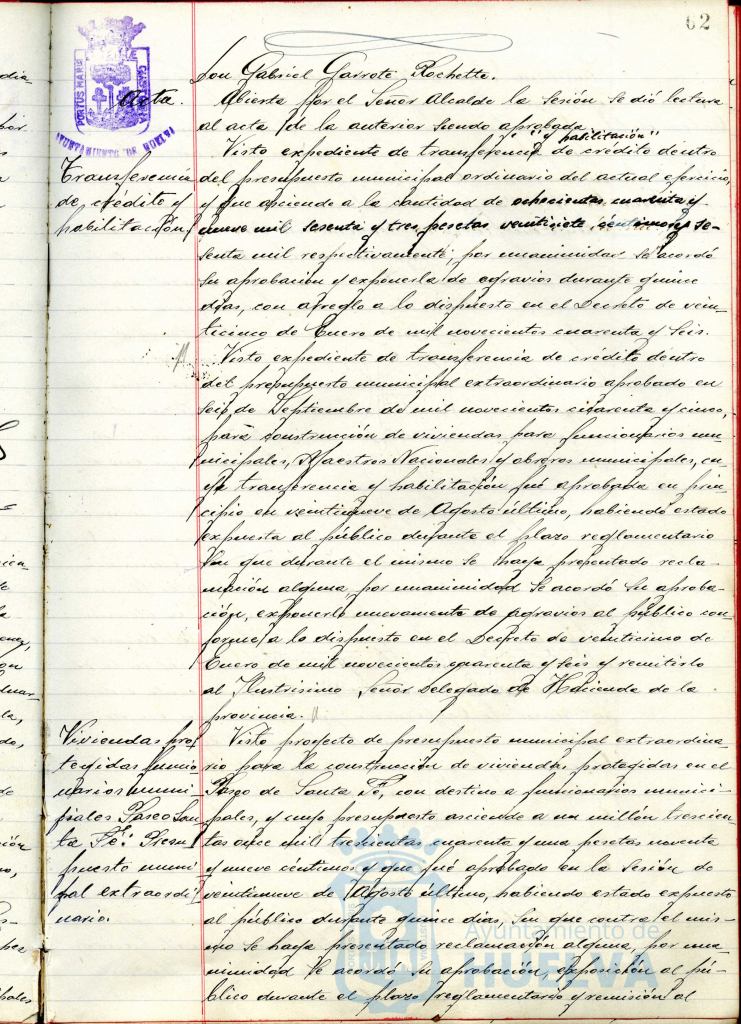 62
PORTUS MARIS
AYUNTAMIENTO DE HUELVA
Don Gabriel Garrote Rochette.
Acta.
Abierta por el Señor Alcalde la Sesión se dió lectura
al acta de la anterior siendo aprobada.
Transferencia
de crédito y
habilitación
"y habilitación"
Visto expediente de transferencia de crédito dentro
del presupuesto municipal ordinario del actual ejercicio,
y que asciende a la cantidad de ochocientas cuarenta y
nueve mil sesenta y tres pesetas veintisiete céntimos y se-
senta mil respectivamente, por unanimidad se acordó
su aprobación y exponerla de agravios durante quince
días, con arreglo a lo dispuesto en el Decreto de vein-
ticinco de Enero de mil novecientos cuarenta y seis.
Visto expediente de transferencia de crédito dentro
del presupuesto municipal extraordinario aprobado en
seis de Septiembre de mil novecientos cuarenta y cinco,
para construcción de viviendas para funcionarios mu-
nicipales, Maestros Nacionales y obreros municipales, cu-
ya tranferencia y habilitación fué aprobada en prin-
cipio en veintinueve de Agosto último, habiendo estado
expuesta al público durante el plazo reglamentario
sin que durante el mismo se haya presentado recla-
mación alguna, por unanimidad se acordó su aproba-
ción, exponerlo nuevamente de agravios al público con-
forme a lo dispuesto en el Decreto de veinticinco de
Enero de mil novecientos cuarenta y seis y remitirlo
al Ilustrisimo Señor Delegado de Hacienda de la
provincia.
Viviendas pro-
tegidas funcio-
narios muni-
cipales Paseo San-
ta Fé: Presu-
puesto muni-
cipal extraordi-
nario.
Visto proyecto de presupuesto municipal extraordina-
rio para la construcción de viviendas protegidas en el
Paseo de Santa Fé, con destino a funcionarios munici-
pales, y cuyo presupuesto asciende a un millón trescien-
tas once mil trescientas cuarenta y una pesetas noventa
y nueve céntimos y que fué aprobado en la Sesión de
veintinueve de Agosto último, habiendo estado expuesto
al público durante quince días, sin que contra el mis-
mo se haya presentado reclamación alguna, por una-
nimidad se acordó su aprobación, exposición al pú-
blico durante el plazo reglamentario y remisión al
Ayuntamiento de
HUELVA